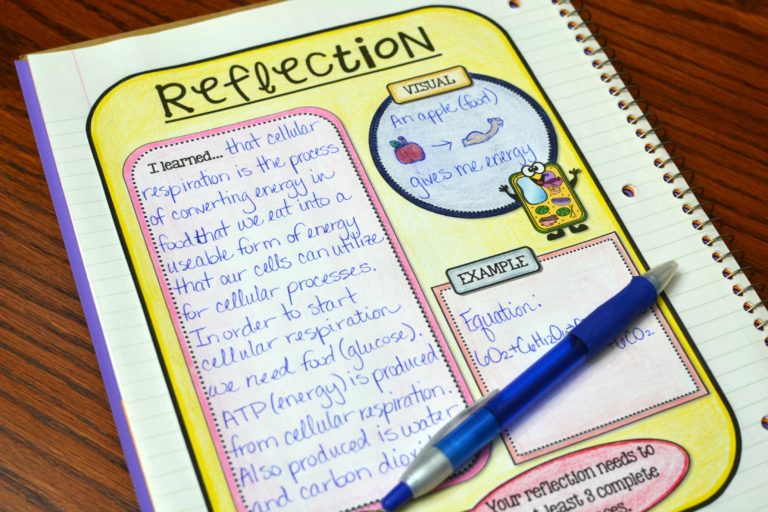 REFLECTION
I learned... that cellular
respiration is the process
of converting energy in
food that we eat into a
useable form of energy
that our cells can utilize
for cellular processes.
In order to start
cellular respiration
we need food (glucose).
ATP (energy) is produced
from cellular respiration.
Also produced is water
and carbon
VISUAL
An apple (food)
→
gives me energy
EXAMPLE
Equation:
6O2+C6H12O6→ +6CO2
Your reflection needs to
least 3 complete